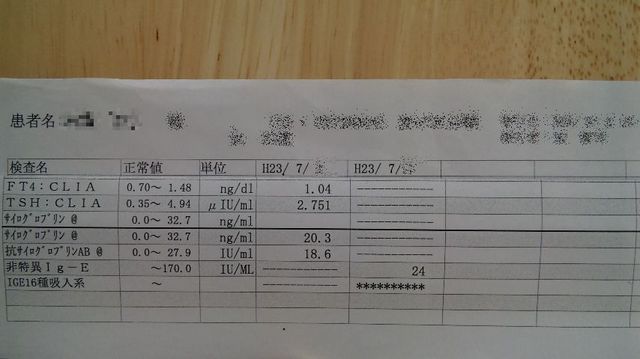 患者名
検査名 正常値 単位 H23/ 7/ H23/ 7/
FT4:CLIA 0.70～ 1.48 ng/dl 1.04 -----------
TSH:CLIA 0.35～ 4.94 μIU/ml 2.751 -----------
ｻｲﾛｸﾞﾛﾌﾞﾘﾝ @ 0.0～ 32.7 ng/ml -----------
ｻｲﾛｸﾞﾛﾌﾞﾘﾝ @ 0.0～ 32.7 ng/ml 20.3 -----------
抗ｻｲﾛｸﾞﾛﾌﾞﾘﾝAB @ 0.0～ 27.9 IU/ml 18.6 -----------
非特異Ｉｇ－Ｅ ～170.0 IU/ML ----------- 24
IGE16種吸入系 ～ ----------- **********